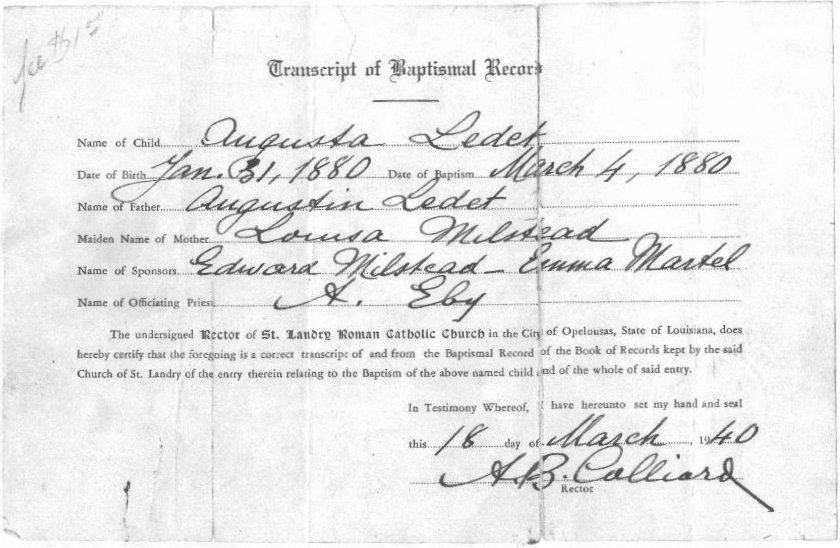 fee $1.00
Transcript of Baptismal Record
Name of Child Augusta Ledet
Date of Birth Jan. 31, 1880 Date of Baptism March 4, 1880
Name of Father Augustin Ledet
Maiden Name of Mother Louisa Milstead
Name of Sponsors Edward Milstead - Emma Martel
Name of Officiating Priest A. Eby
The undersigned Rector of St. Landry Roman Catholic Church in the City of Opelousas, State of Louisiana, does
hereby certify that the foregoing is a correct transcript of and from the Baptismal Record of the Book of Records kept by the said
Church of St. Landry of the entry therein relating to the Baptism of the above named child and of the whole of said entry.
In Testimony Whereof, I have hereunto set my hand and seal
this 18 day of March, 1940
A.B. Colliard
Rector